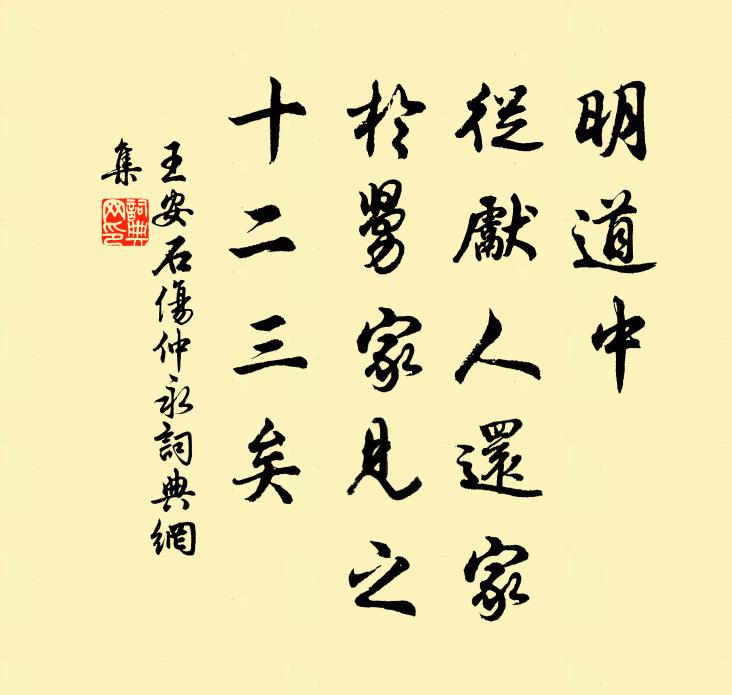 明道中
從獻人還家
於舅家見之
十二三矣
王安石傷仲永詞典網
集
詞典
网印